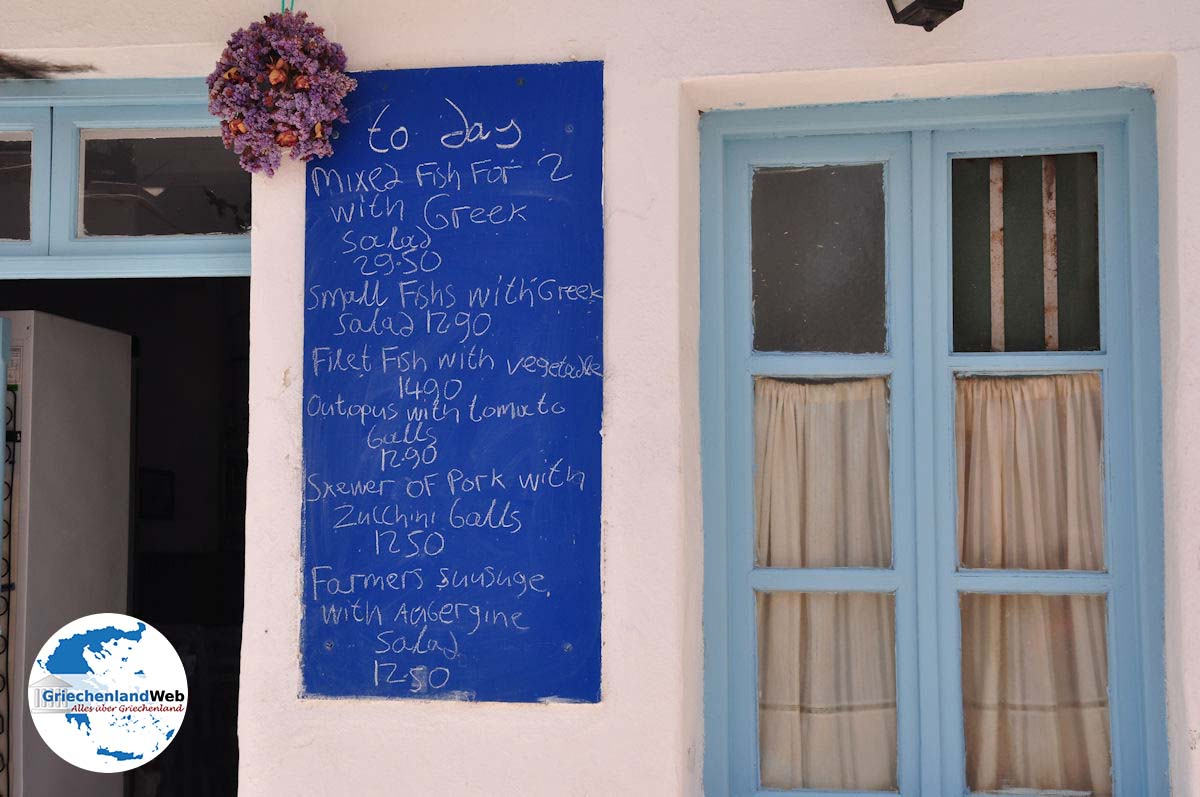 to day
Mixed Fish For 2
with Greek
salad
29.50
Small Fishs with Greek
salad 12.90
Filet Fish with vegetable
14.90
Outopus with tomato
balls
12.90
Skewer of Pork with
Zucchini balls
12.50
Farmers sausuge
with Aubergine
salad
12.50
GriechenlandWeb
Alles über Griechenland